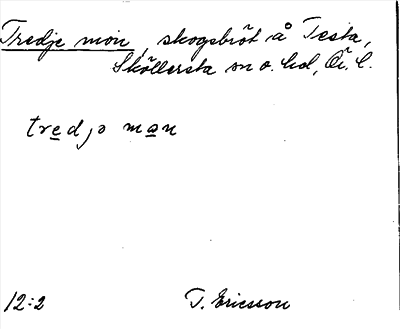 Tredje mon, skogsbröt å Testa,
Sköllersta sn o. hd, Ör. l.
tredjo man
12:2 T. Ericsson